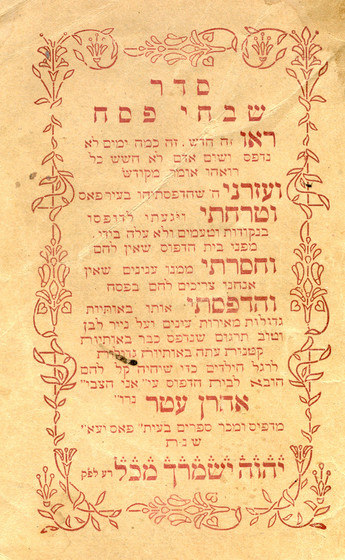 סדר
שבחי פסח
ראו זה חדש. זה כמה ימים לא
נדפס ושום אדם לא השש כל
רואהו אומר מקודש
ועזרני ה׳ שהדפסתיהו בעיר פאס
וטרחתי ויגעתי לדופסו
בנקודות וטעמים ולא עלה בידי.
מפני בית הדפוס שאין להם
וחסרתי ממנו ענינים שאין
אנחנו צריכים להם בפסח
והדפסתי אותו באותיות
גדולות מאירות עינים ועל נייר לבן
וטוב תרגום שנדפס כבר באותיות
קטנות עתה באותיות גדולות
לרגל הילדים כדי שיהיה קל להם
הובא לבית הדפוס ע״י ״אני הצבי״
אהרן עטר נר״ו
מדפיס ומכר ספרים בעית״ פאס יעא״י
שנת
יהוה ישמרך מכל רע לפק